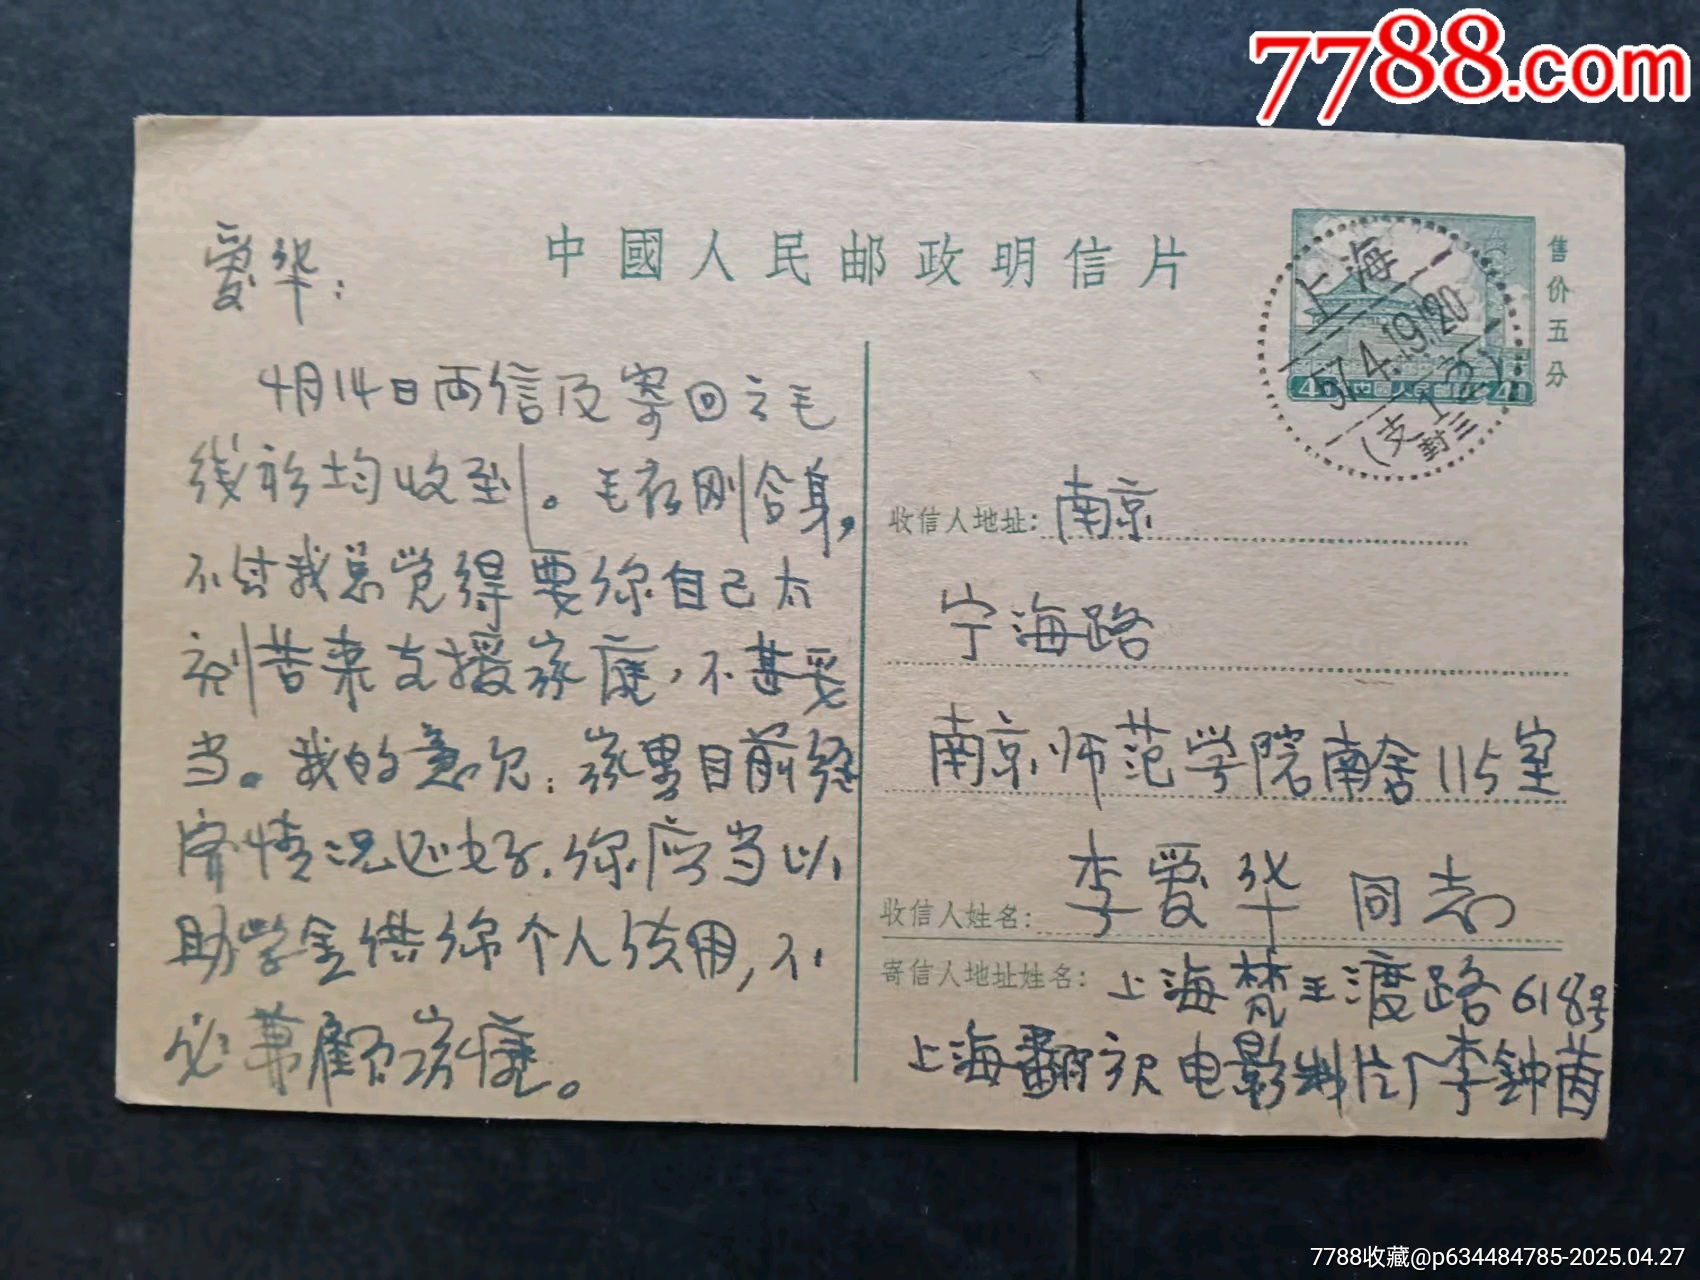 7788.com
中國人民邮政明信片
售价五分
上海
57.4.19.20
(支1)
封三
4分 中國人民邮政 40
爱华：
4月14日两信及寄回之毛
线衫均收到。毛衣刚合身，
不过我总觉得要你自己太
刻苦来支援家庭，不甚妥
当。我的意见：家里目前经
济情况还好，你应当以
助学金供你个人使用，不
必兼顾家庭。
收信人地址：南京
宁海路
南京师范学院南舍115室
收信人姓名：李爱华同志
寄信人地址姓名：上海梵王渡路618号
上海翻译电影制片厂李钟茵
7788收藏@p634484785-2025.04.27